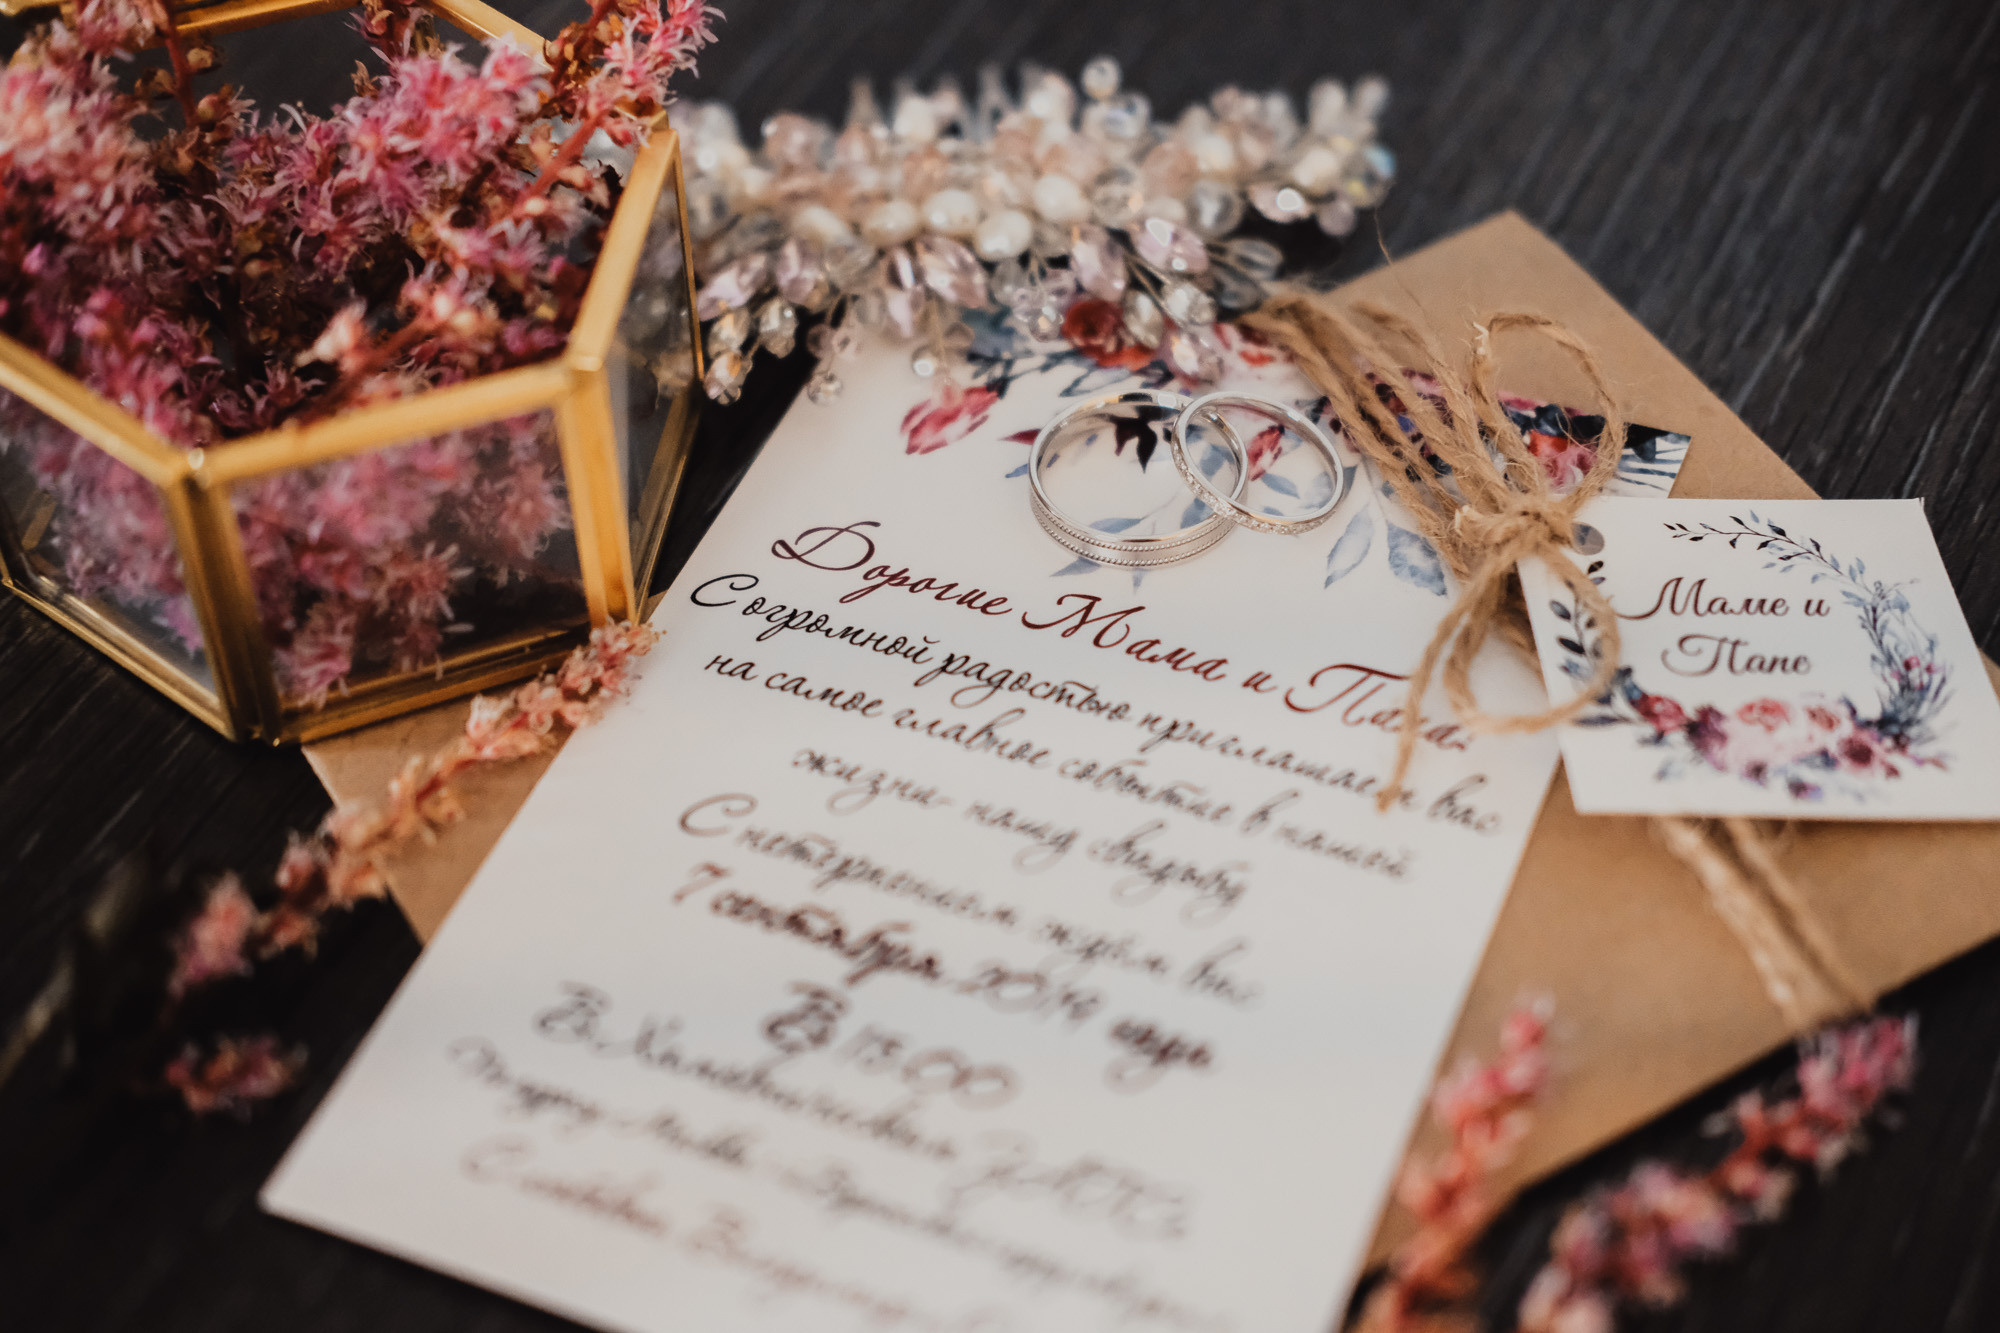 Дорогие Мама и Папа!
С огромной радостью приглашаем вас
на самое главное событие в нашей
жизни- нашу свадьбу
С нетерпением ждём вас
7 сентября 2019 года
В 15:00
В Хамовническом ЗАГСе
С любовью
Маме и
Папе